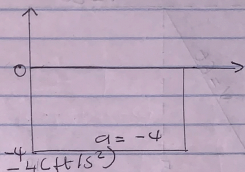 0
a = -4
-4
-4(ft/s²)